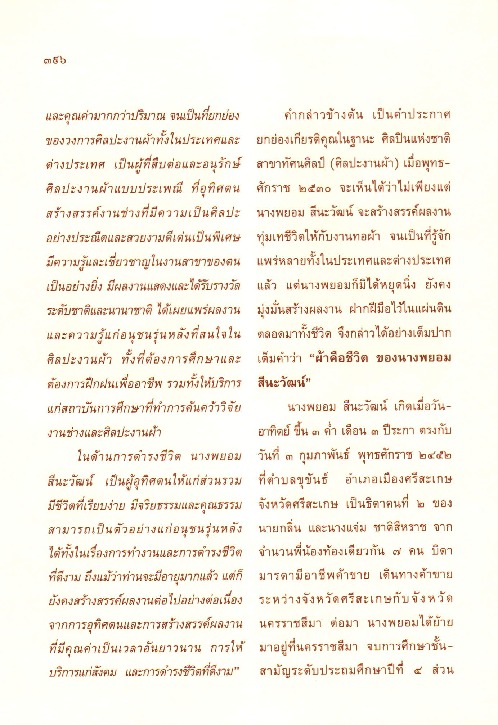 ๓๙๖
และคุณค่ามากกว่าปริมาณ จนเป็นที่ยกย่อง
ของวงการศิลปะงานผ้าทั้งในประเทศและ
ต่างประเทศ เป็นผู้ที่สืบต่อและอนุรักษ์
ศิลปะงานผ้าแบบประเพณี ที่อุทิศตน
สร้างสรรค์งานช่างที่มีความเป็นศิลปะ
อย่างประณีตและสวยงามดีเด่นเป็นพิเศษ
มีความรู้และเชี่ยวชาญในงานสาขาของตน
เป็นอย่างยิ่ง มีผลงานแสดงและได้รับรางวัล
ระดับชาติและนานาชาติ ได้เผยแพร่ผลงาน
และความรู้แก่อนุชนรุ่นหลังที่สนใจใน
ศิลปะงานผ้า ทั้งที่ต้องการศึกษาและ
ต้องการฝึกฝนเพื่ออาชีพ รวมทั้งให้บริการ
แก่สถาบันการศึกษาที่ทำการค้นคว้าวิจัย
งานช่างและศิลปะงานผ้า
ในด้านการดำรงชีวิต นางพยอม
สีนะวัฒน์ เป็นผู้อุทิศตนให้แก่ส่วนรวม
มีชีวิตที่เรียบง่าย มีจริยธรรมและคุณธรรม
สามารถเป็นตัวอย่างแก่อนุชนรุ่นหลัง
ได้ทั้งในเรื่องการทำงานและการดำรงชีวิต
ที่ดีงาม ถึงแม้ว่าท่านจะมีอายุมากแล้ว แต่ก็
ยังคงสร้างสรรค์ผลงานต่อไปอย่างต่อเนื่อง
จากการอุทิศตนและการสร้างสรรค์ผลงาน
ที่มีคุณค่าเป็นเวลาอันยาวนาน การให้
บริการแก่สังคม และการดำรงชีวิตที่ดีงาม”
คำกล่าวข้างต้น เป็นคำประกาศ
ยกย่องเกียรติคุณในฐานะ ศิลปินแห่งชาติ
สาขาทัศนศิลป์ (ศิลปะงานผ้า) เมื่อพุทธ-
ศักราช ๒๕๓๐ จะเห็นได้ว่าไม่เพียงแต่
นางพยอม สีนะวัฒน์ จะสร้างสรรค์ผลงาน
ทุ่มเทชีวิตให้กับงานทอผ้า จนเป็นที่รู้จัก
แพร่หลายทั้งในประเทศและต่างประเทศ
แล้ว แต่นางพยอมก็มิได้หยุดนิ่ง ยังคง
มุ่งมั่นสร้างผลงาน ฝากฝีมือไว้ในแผ่นดิน
ตลอดมาทั้งชีวิต จึงกล่าวได้อย่างเต็มปาก
เต็มคำว่า “ผ้าคือชีวิต ของนางพยอม
สีนะวัฒน์”
นางพยอม สีนะวัฒน์ เกิดเมื่อวัน-
อาทิตย์ ขึ้น ๓ ค่ำ เดือน ๓ ปีระกา ตรงกับ
วันที่ ๓ กุมภาพันธ์ พุทธศักราช ๒๔๕๒
ที่ตำบลขุขันธ์ อำเภอเมืองศรีสะเกษ
จังหวัดศรีสะเกษ เป็นธิดาคนที่ ๒ ของ
นายกลิ่น และนางแจ่ม ชาติสิหราช จาก
จำนวนพี่น้องท้องเดียวกัน ๗ คน บิดา
มารดามีอาชีพค้าขาย เดินทางค้าขาย
ระหว่างจังหวัดศรีสะเกษกับจังหวัด
นครราชสีมา ต่อมา นางพยอมได้ย้าย
มาอยู่ที่นครราชสีมา จบการศึกษาชั้น-
สามัญระดับประถมศึกษาปีที่ ๔ ส่วน